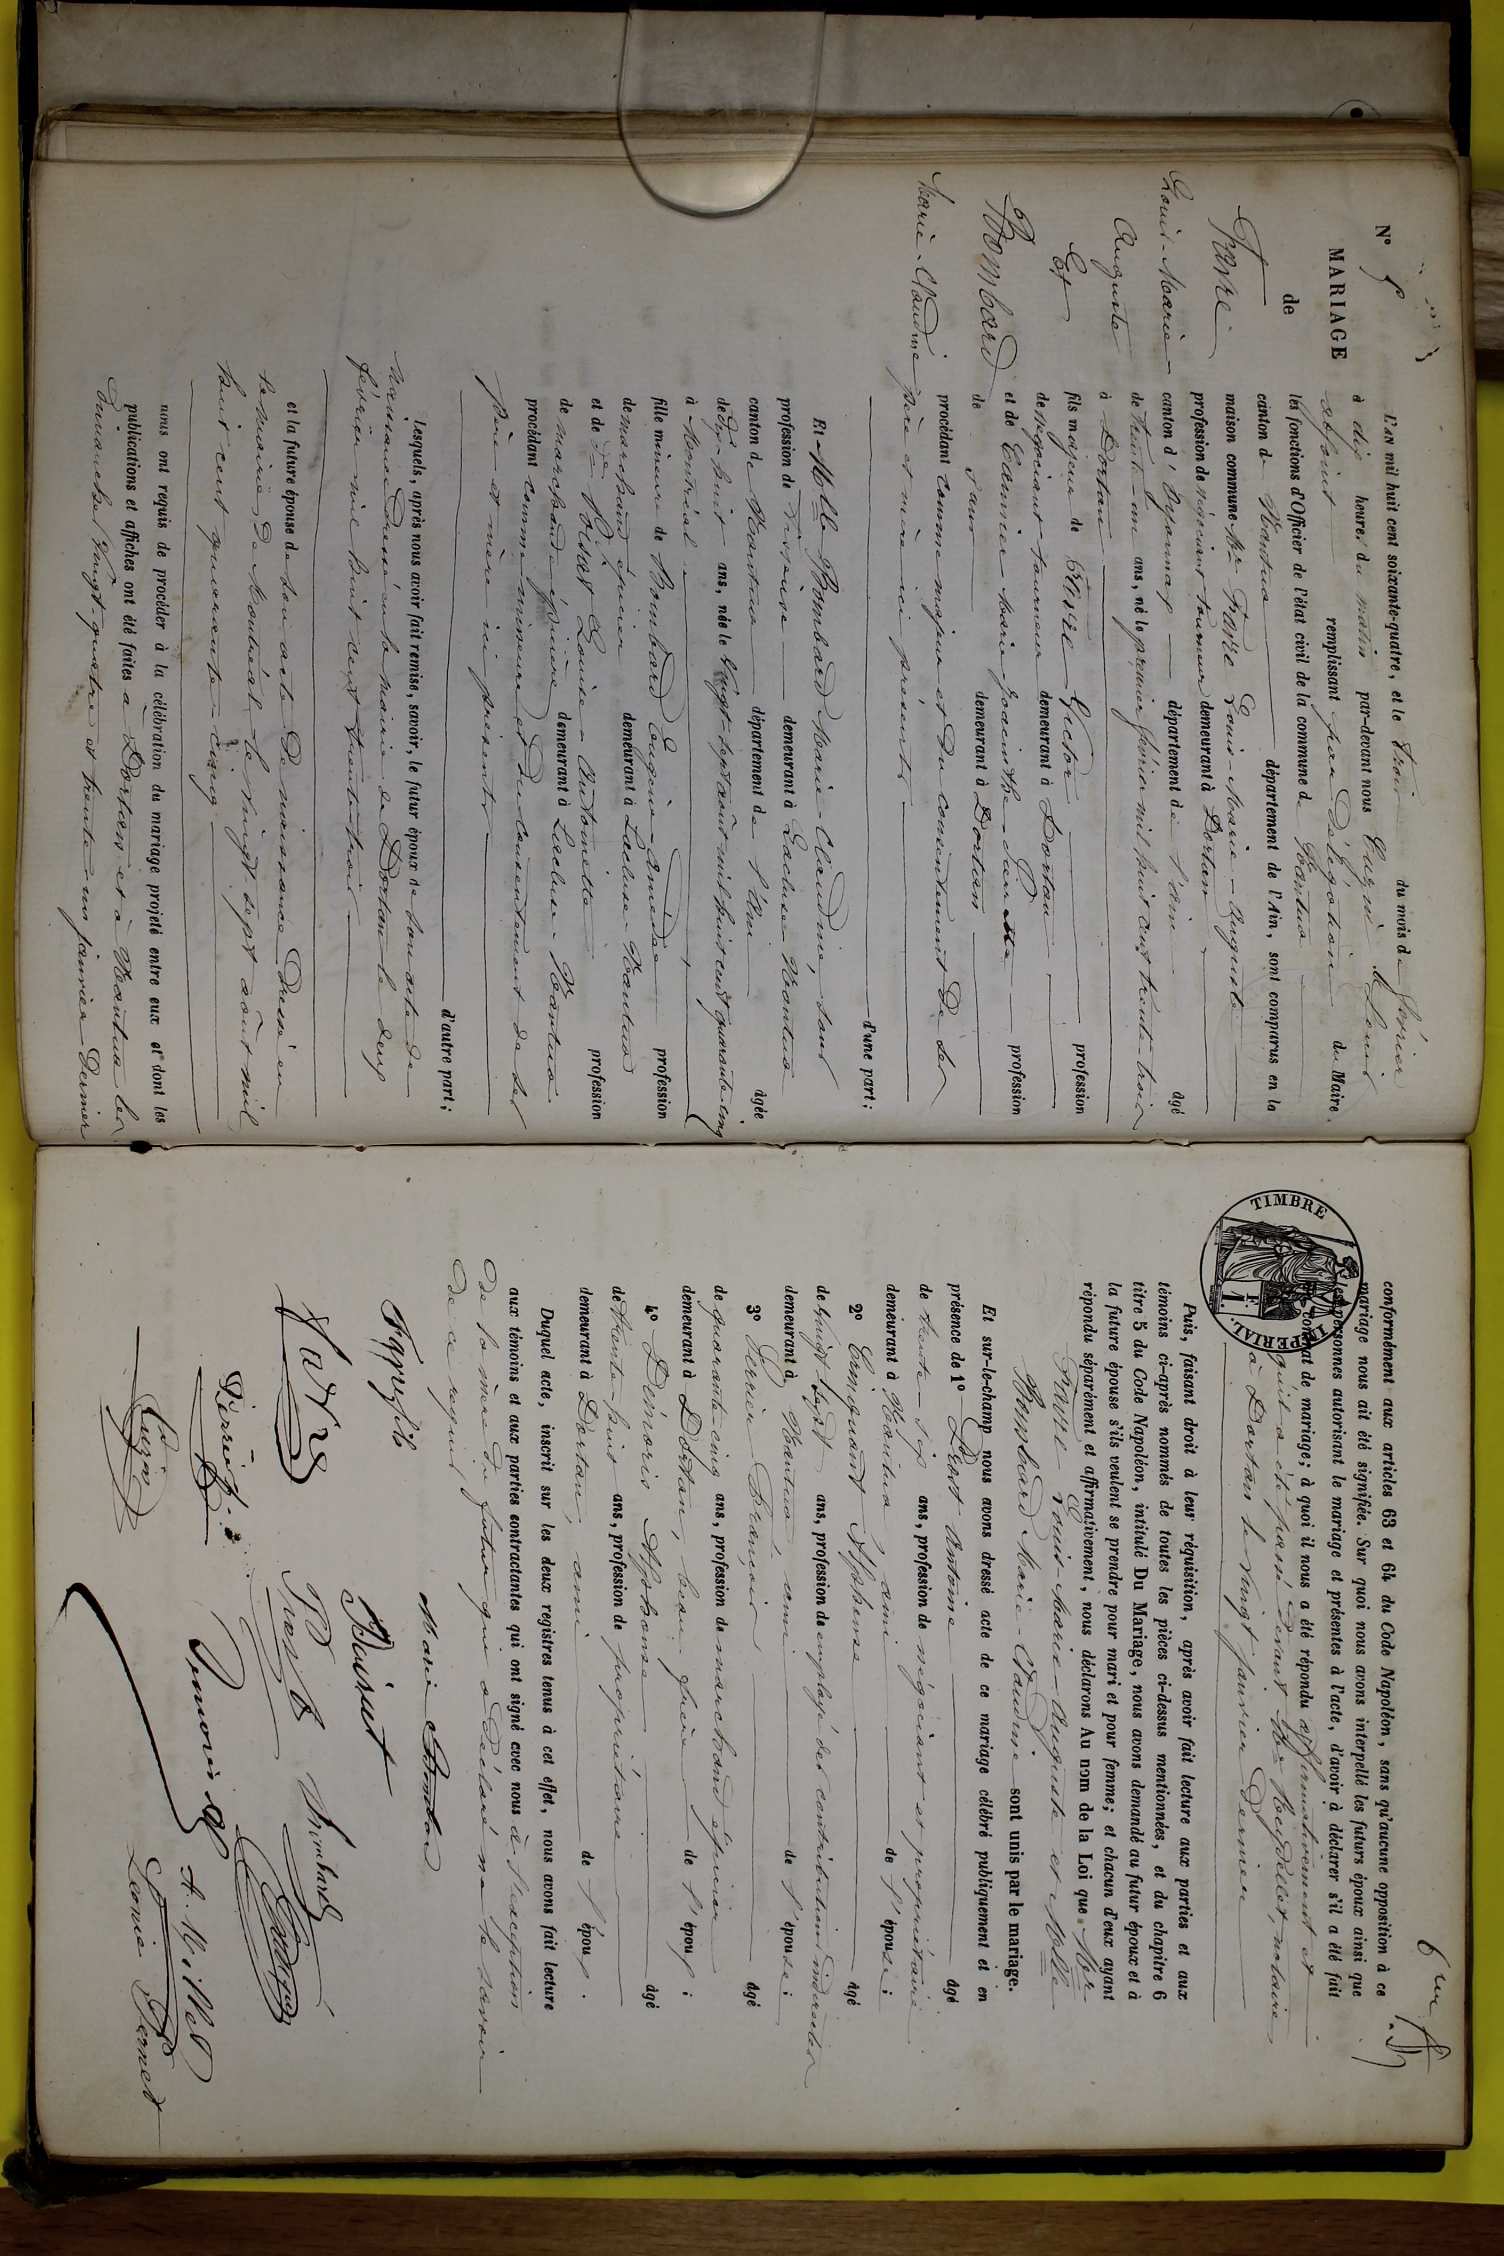 N° 5
MARIAGE
de
Favre
Louis-Marie-
Auguste
Et
Bombard
Marie-Claudine
L'AN mil huit cent soixante-quatre, et le trois du mois de février
à dix heures du matin par-devant nous
adjoint remplissant par délégation du Maire
les fonctions d'Officier de l'état civil de la commune de Nantua
canton de Nantua département de l'Ain, sont comparus en la
maison commune Mr Favre Louis-Marie-Auguste
profession de négociant tourneur demeurant à Dortan
canton d'Oyonnax département de l'ain âgé
de trente-un ans, né le premier février mil huit cent trente-trois
à Dortan
fils majeur de Favre Victor profession
de négociant tourneur demeurant à Dortan
et de Marie profession
de sans demeurant à Dortan
procédant comme majeur et du consentement de ses
père et mère ici présents
d'une part;
Et Melle Bombard Marie-Claudine, sans
profession de demeurant à Nantua âgée
canton de Nantua département de l'Ain
de dix-huit ans, née le vingt-sept août mil huit cent quarante-cinq
à Montréal
fille mineure de Bombard Eugène-Amédée profession
de marchand épicier demeurant à Lacluse-Nantua
et de Louise-Antoinette profession
de marchande épicière demeurant à Lacluse-Nantua
procédant comme mineure et du consentement de ses
père et mère ici présents
d'autre part;
Lesquels, après nous avoir fait remise, savoir, le futur époux de son acte de
naissance dressé en la mairie de Dortan le deux
février mil huit cent trente-trois
et la future épouse de son acte de naissance dressé en
la mairie de Montréal le vingt sept août mil
huit cent quarante-cinq
nous ont requis de procéder à la célébration du mariage projeté entre eux et dont les
publications et affiches ont été faites à Dortan et à Nantua les
Dimanches vingt-quatre et trente un janvier dernier
conformément aux articles 63 et 64 du Code Napoléon, sans qu'aucune opposition à ce
mariage nous ait été signifiée. Sur quoi nous avons interpellé les futurs époux ainsi que
les personnes autorisant le mariage et présentes à l'acte, d'avoir à déclarer s'il a été fait
contrat de mariage; à quoi il nous a été répondu affirmativement et
qu'il a été passé devant Me notaire
à Dortan le vingt janvier dernier
TIMBRE IMPERIAL
1 F.
Puis, faisant droit à leur réquisition, après avoir fait lecture aux parties et aux
témoins ci-après nommés de toutes les pièces ci-dessus mentionnées, et du chapitre 6
titre 5 du Code Napoléon, intitulé Du Mariage, nous avons demandé au futur époux et à
la future épouse s'ils veulent se prendre pour mari et pour femme; et chacun d'eux ayant
répondu séparément et affirmativement, nous déclarons Au nom de la Loi que Mr
Favre Louis-Marie-Auguste et Melle
Bombard Marie-Claudine sont unis par le mariage.
Et sur-le-champ nous avons dressé acte de ce mariage célébré publiquement et en
présence de 1° Prost Antoine âgé
de trente-six ans, profession de négociant et propriétaire
demeurant à Nantua, ami de l'épouse;
2° Alphonse âgé
de vingt sept ans, profession de employé des contributions indirectes
demeurant à Nantua, ami de l'épouse;
3° François âgé
de quarante cinq ans, profession de marchand épicier
demeurant à Dortan, beau frère de l'époux;
4° Alphonse âgé
de trente-huit ans, profession de propriétaire
demeurant à Dortan, ami de l'époux.
Duquel acte, inscrit sur les deux registres tenus à cet effet, nous avons fait lecture
aux témoins et aux parties contractantes qui ont signé avec nous à l'exception
de la mère du futur qui a déclaré ne le savoir
de ce requis
Favre fils
Marie Bombard
Favre
Bombard
A. Millet